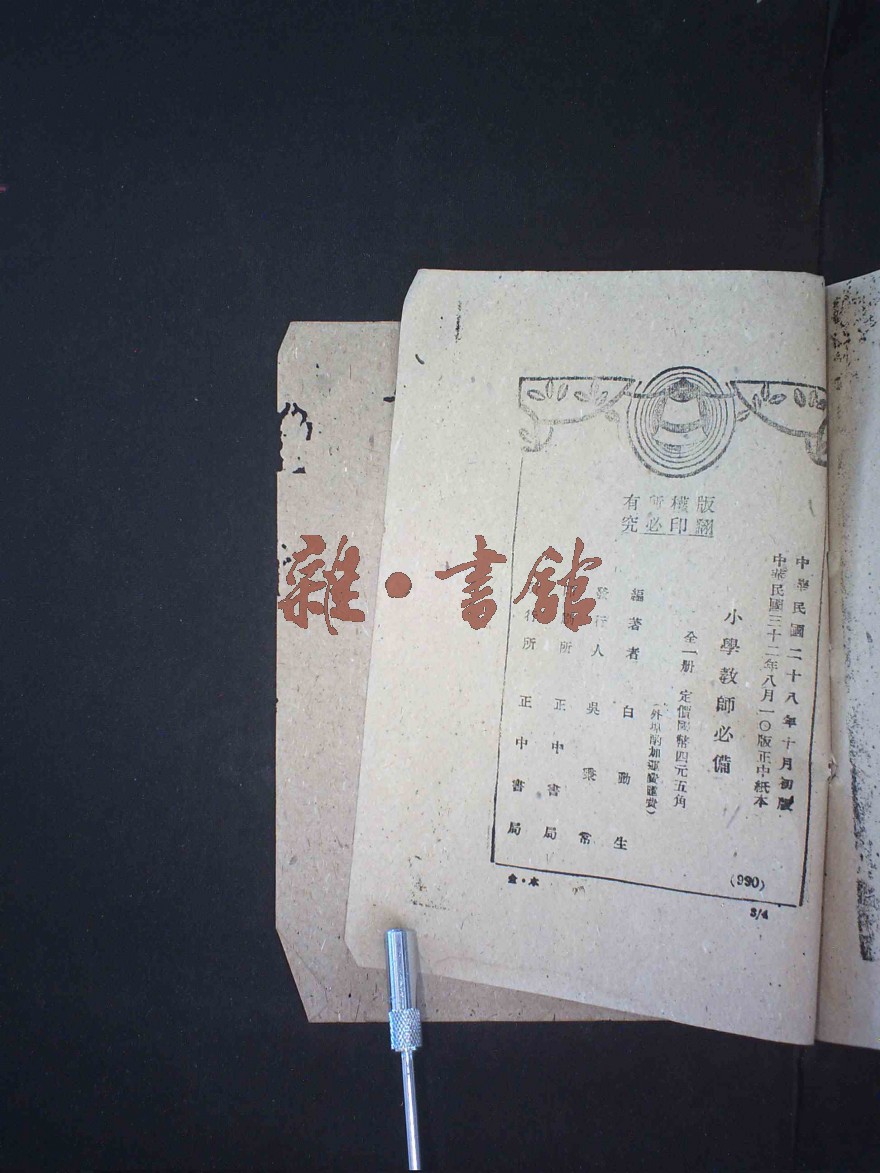 版權所有
翻印必究
中華民國二十八年十月初版
中華民國三十二年八月一〇版正中紙本
小學教師必備
全一册 定價國幣四元五角
(外埠酌加運費匯費)
編著者 白勤生
發行人 吳秉常
所 正中書局
行所 正中書局
(990)
金·本
3/4
雜·書館